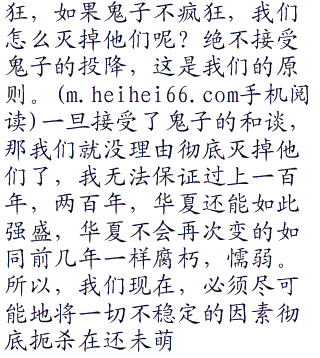 狂，如果鬼子不疯狂，我们
怎么灭掉他们呢？绝不接受
鬼子的投降，这是我们的原
则。(m.heihei66.com手机阅
读)一旦接受了鬼子的和谈，
那我们就没理由彻底灭掉他
们了，我无法保证过上一百
年，两百年，华夏还能如此
强盛，华夏不会再次变的如
同前几年一样腐朽，懦弱。
所以，我们现在，必须尽可
能地将一切不稳定的因素彻
底扼杀在还未萌